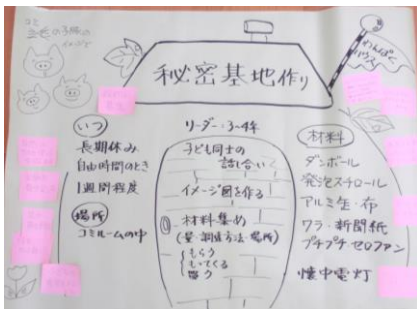 秘密基地作り
わんぱく
ハウス
の子豚の
イメージで
いつ
長期休み
自由時間のとき
1週間程度
場所
コミルームの中
リーダー:3~4年
子ども同士の
話し合い
イメージ図を作る
材料集め
(量・調達方法・場所)
もらう
もってくる
買う
材料
ダンボール
発泡スチロール
アルミ缶・布
ワラ・新聞紙
プチプチセロファン
懐中電灯